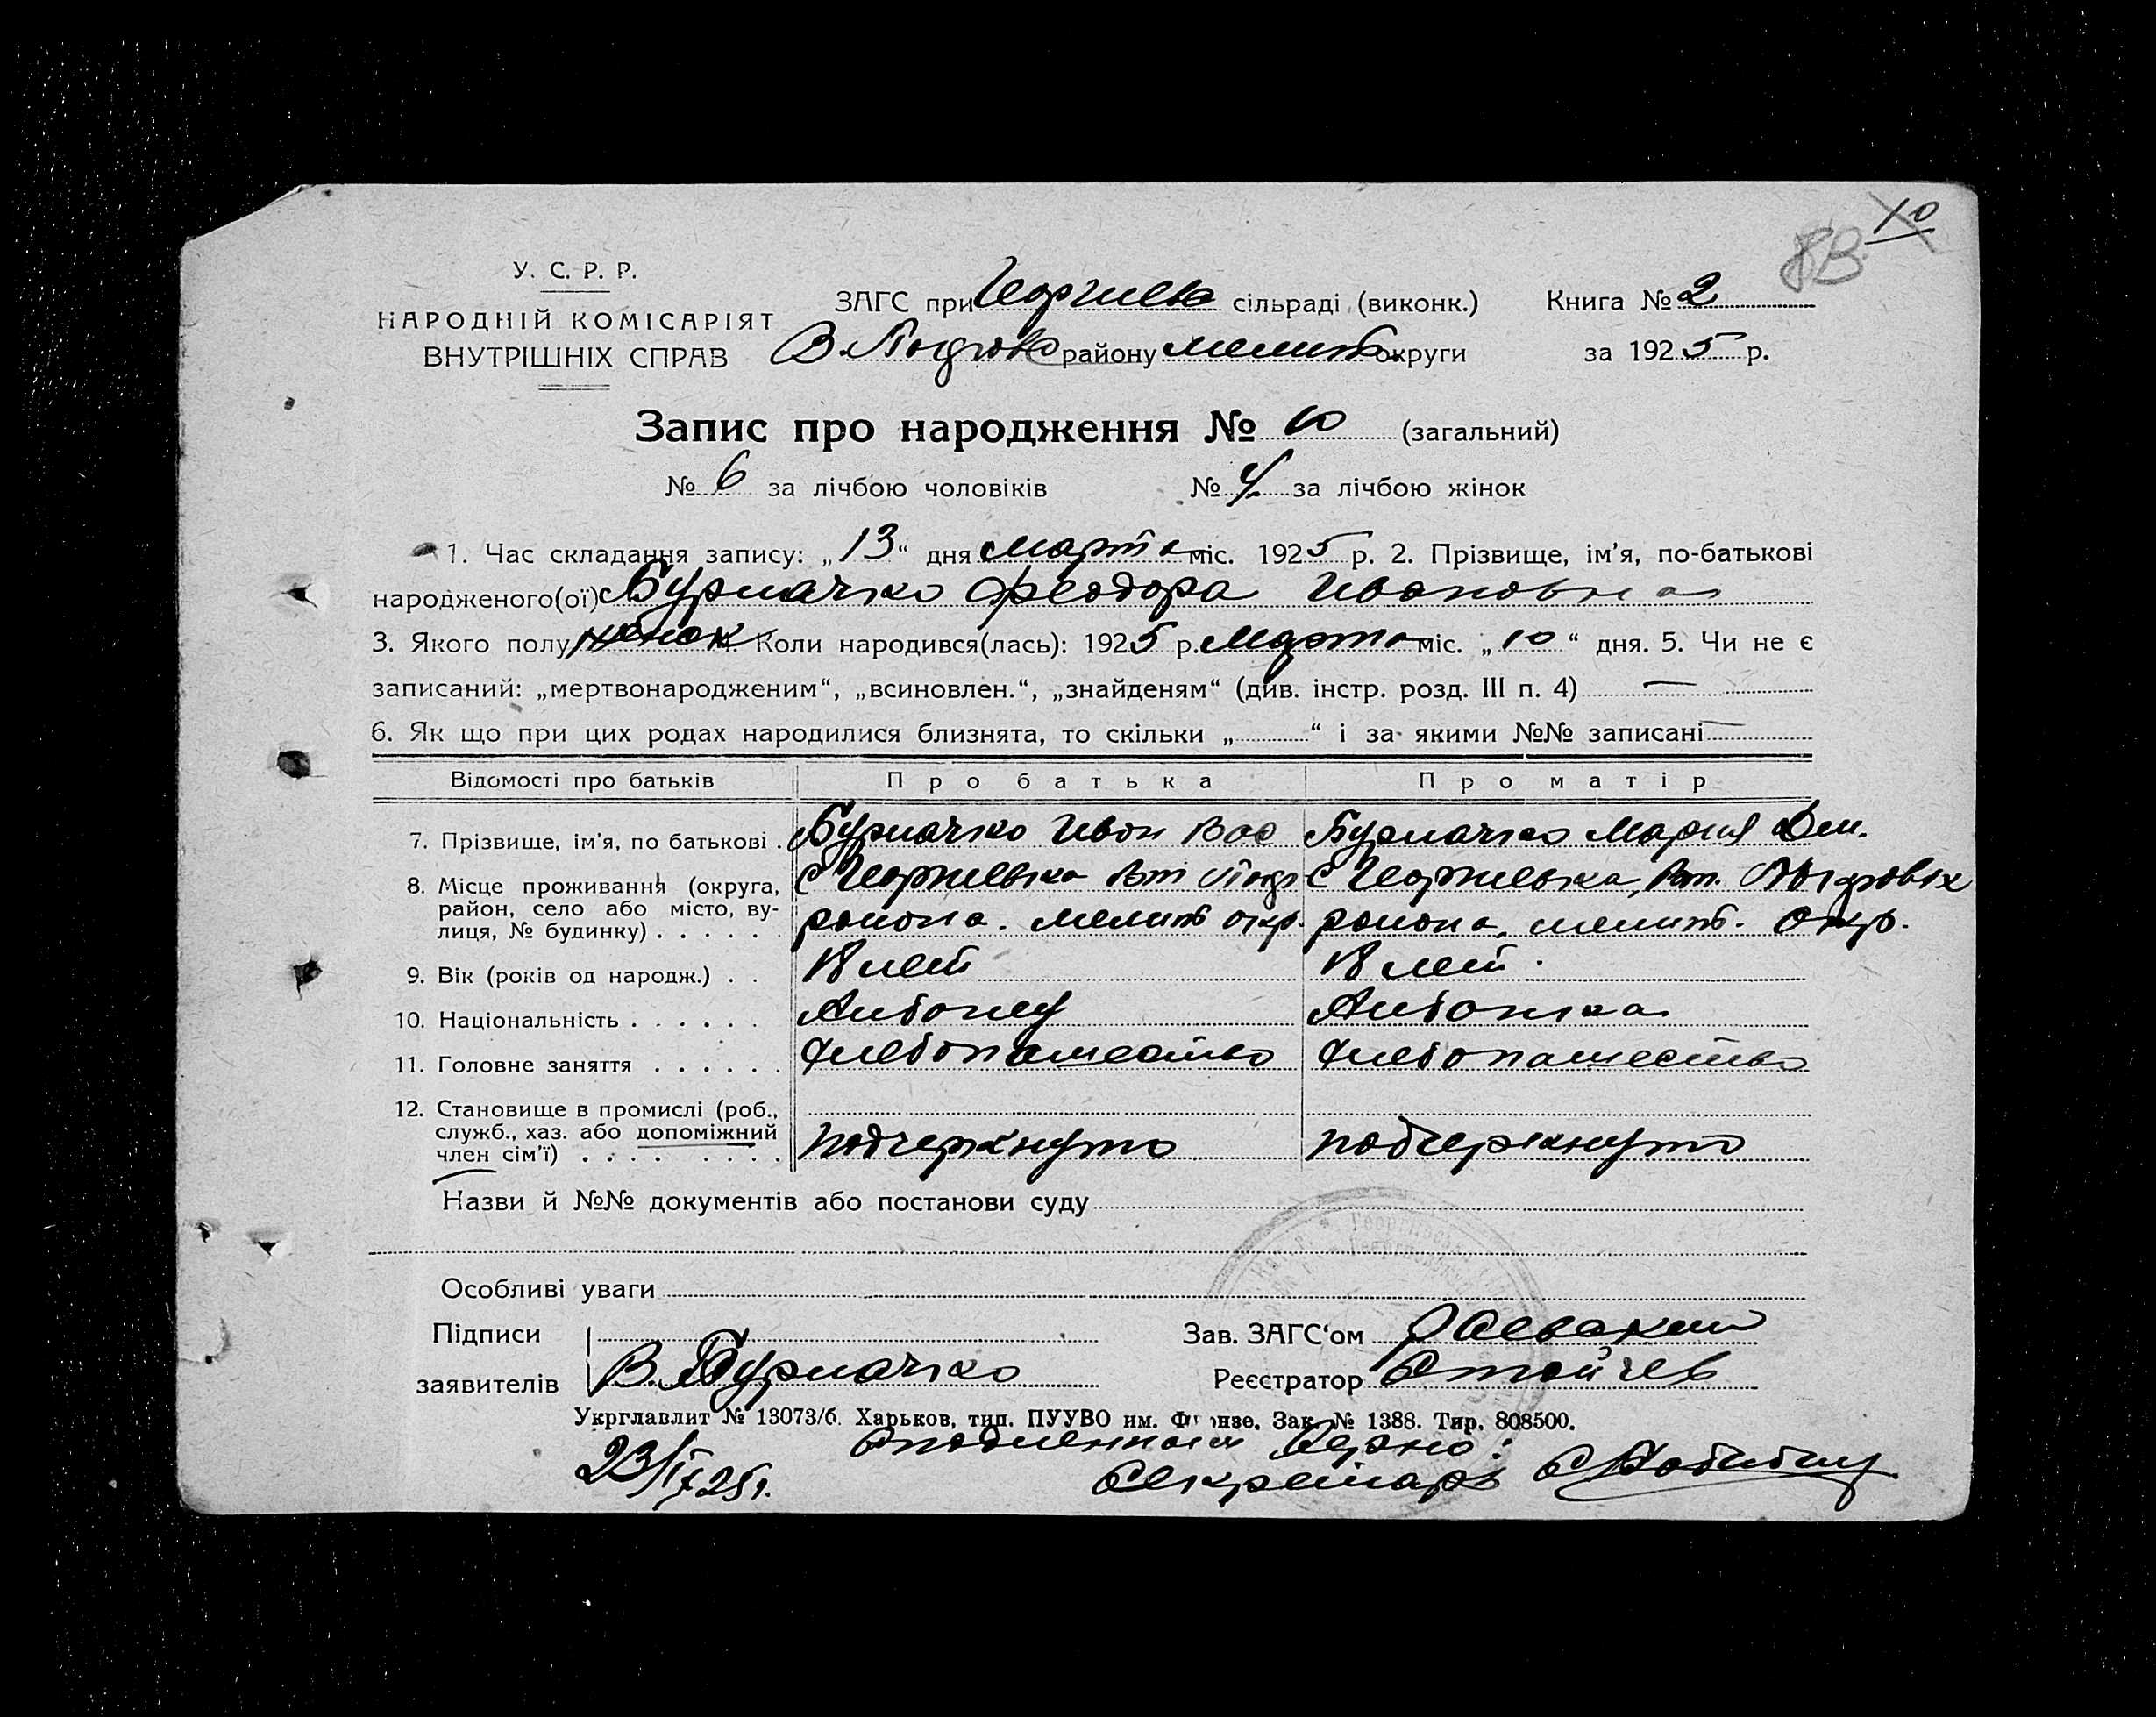 10
8В.
У. С. Р. Р.
НАРОДНІЙ КОМІСАРІЯТ
ВНУТРІШНІХ СПРАВ
ЗАГС при сільраді (виконк.)
Книга № 2
району Мелит. округи
за 1925 р.
Запис про народження № 10 (загальний)
№ 6 за лічбою чоловіків № 4 за лічбою жінок
1. Час складання запису: „13“ дня Марта міс. 1925 р. 2. Прізвище, ім'я, по-батькові
народженого(ої) Бурлачко Феодора Ивановна
3. Якого полу женск Коли народився(лась): 1925 р. Марта міс. „10“ дня. 5. Чи не є
записаний: „мертвонародженим“, „всиновлен.“, „знайденям“ (див. інстр. розд. III п. 4) —
6. Як що при цих родах народилися близнята, то скільки „ “ і за якими №№ записані —
Відомості про батьків Про батька Про матір
7. Прізвище, ім'я, по батькові . Бурлачко Иван Вас Бурлачко Мария Дм.
8. Місце проживання (округа, район, село або місто, вулиця, № будинку) . . . . . .
района. Мелит окр. района, мелит. Окр.
9. Вік (років од народж.) . . 18 лет 18 лет.
10. Національність . . . . . .
11. Головне заняття . . . . . . Хлебопашество Хлебопашество
12. Становище в промислі (роб.,
служб., хаз. або допоміжний
член сім'ї) . . . . . . . . подчеркнуто подчеркнуто
Назви й №№ документів або постанови суду
Особливі уваги
Підписи
заявителів В. Бурлачко
Зав. ЗАГС'ом
Реєстратор Стойчев
Укрглавлит № 13073/б. Харьков, тип. ПУУВО им. Фрунзе. Зак. № 1388. Тир. 808500.
С подлинным верно:
Секретарь